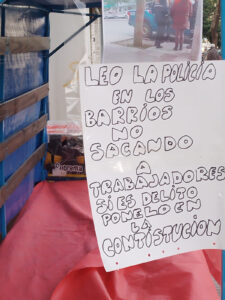 LEO LA POLICIA
EN LOS
BARRIOS
NO
SACANDO
A
TRABAJADORES
SI ES DELITO
PONELO EN
LA
CONTISTUCION